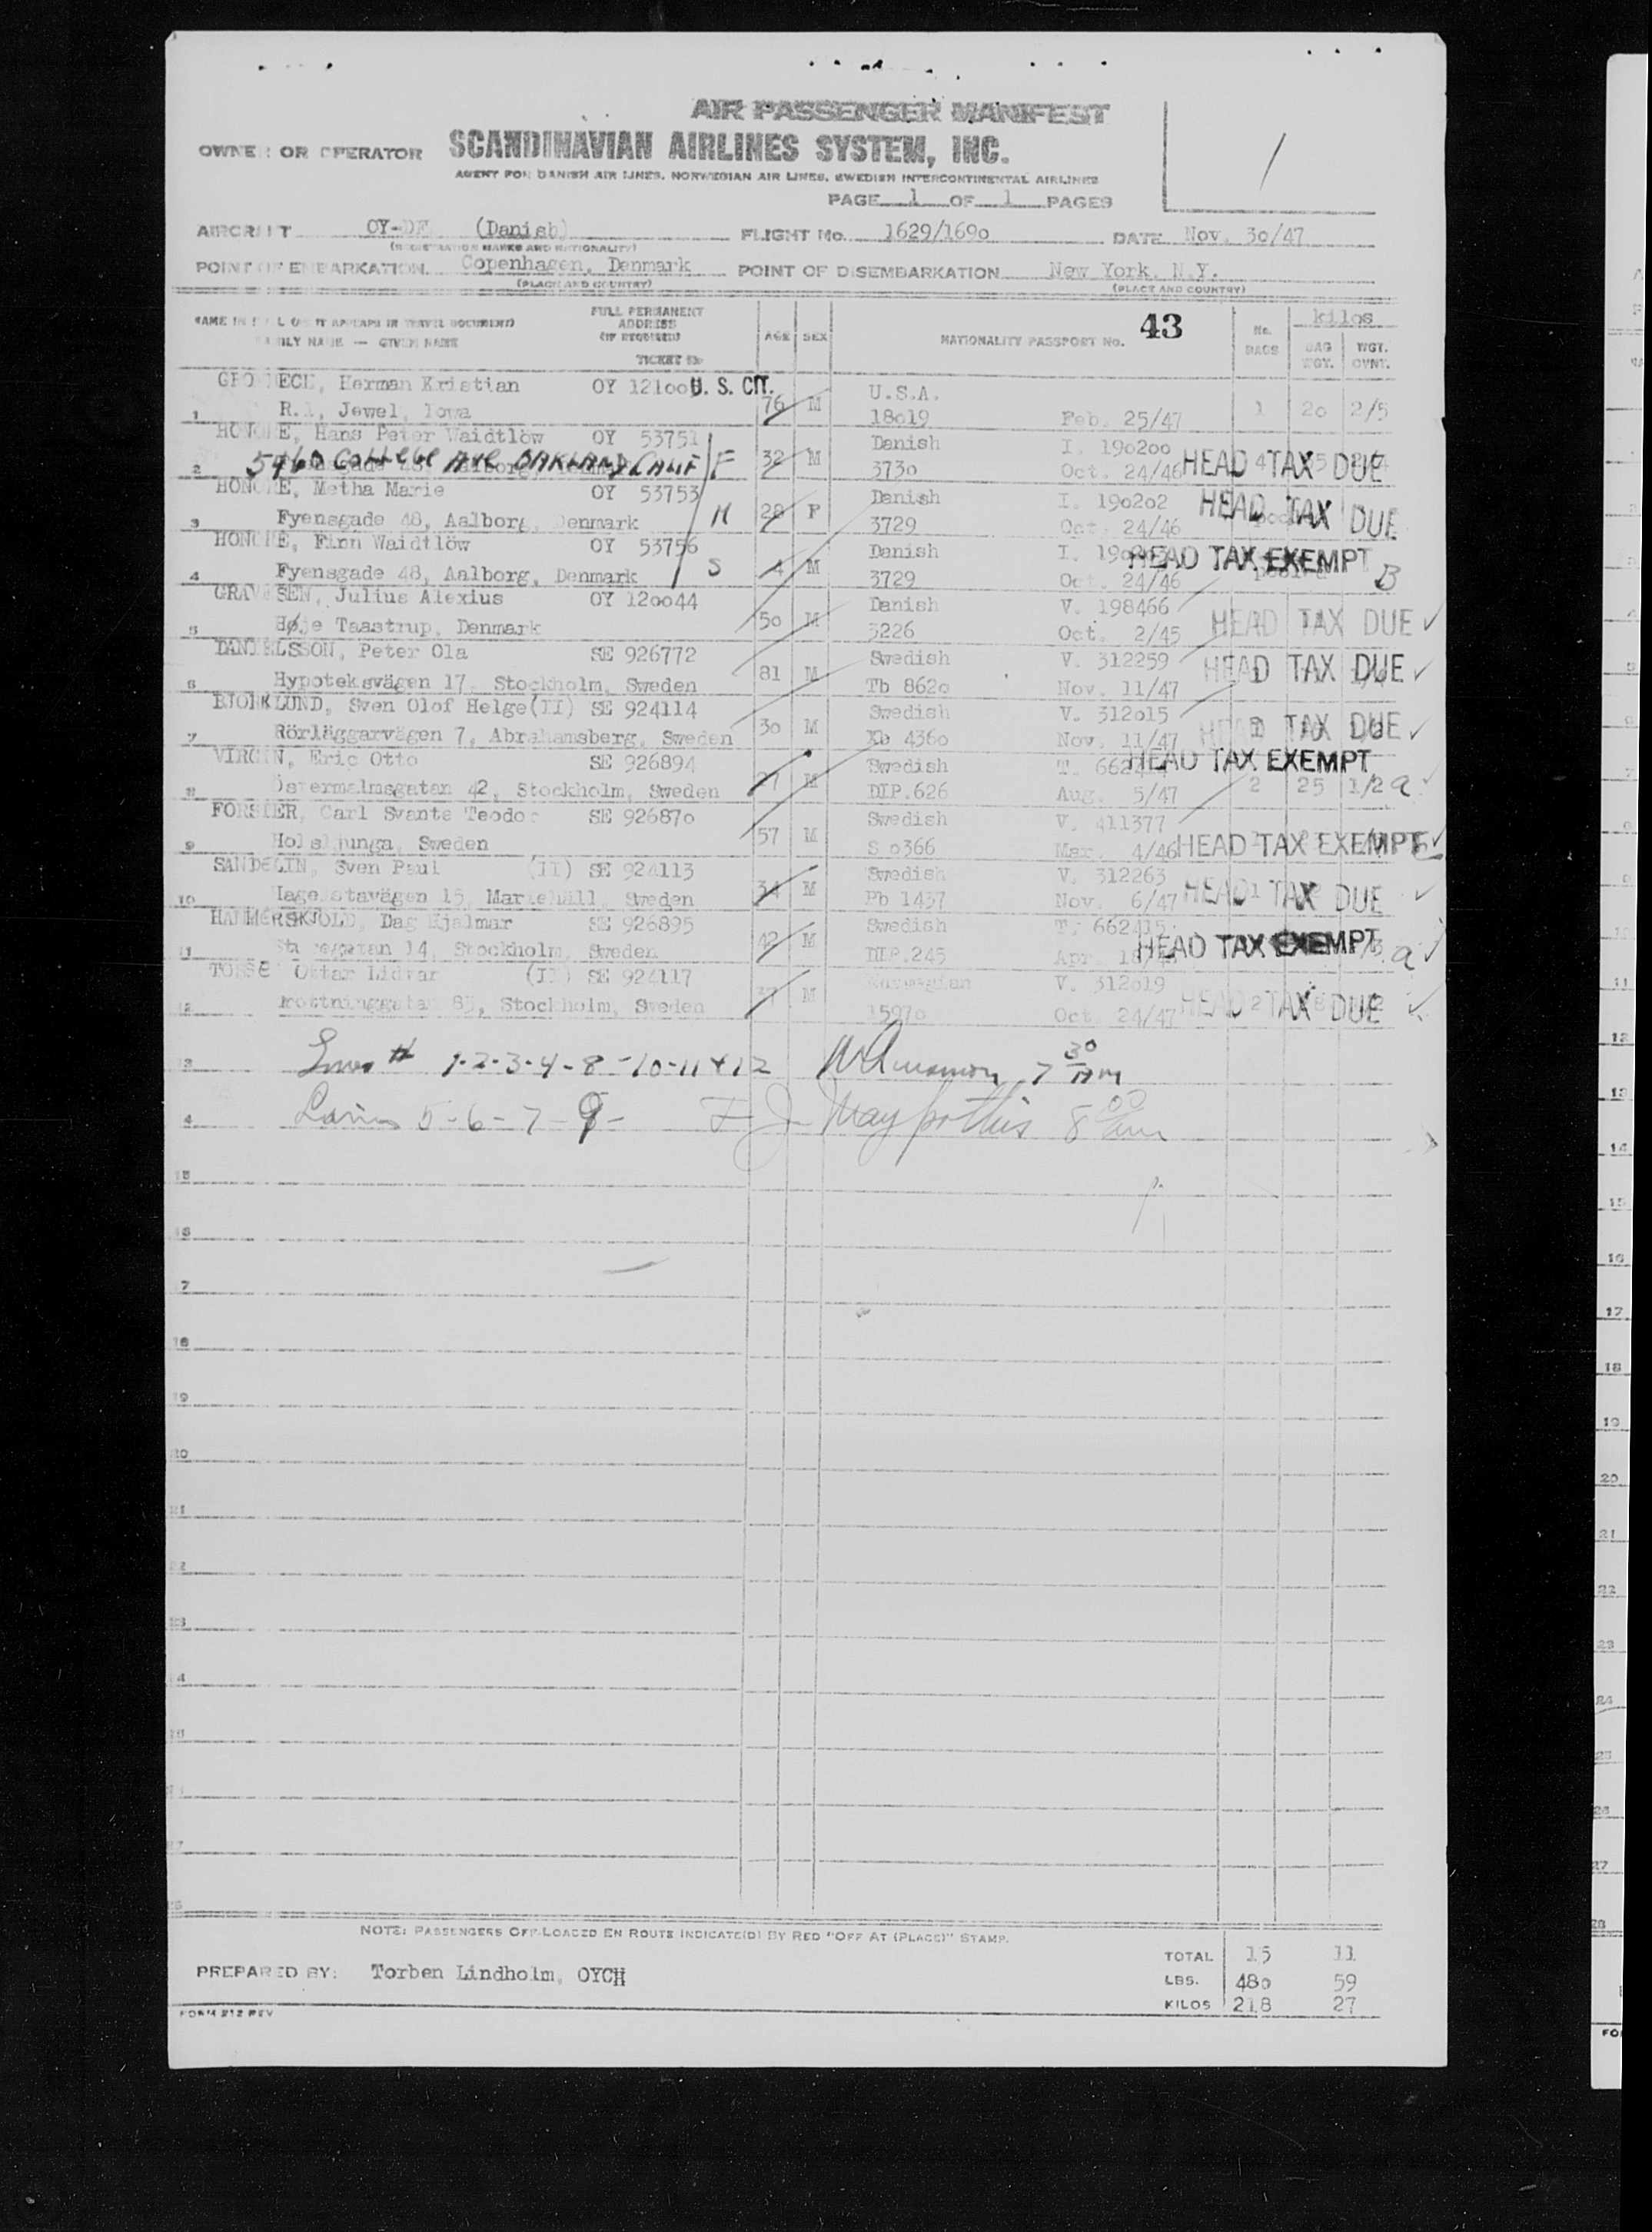 AIR PASSENGER MANIFEST
OWNER OR OPERATOR SCANDINAVIAN AIRLINES SYSTEM, INC.
AGENT FOR DANISH AIR LINES, NORWEGIAN AIR LINES, SWEDISH INTERCONTINENTAL AIRLINES
PAGE 1 OF 1 PAGES
AIRCRAFT OY-DF (Danish) FLIGHT No. 1629/1690 DATE Nov. 30/47
(REGISTRATION MARKS AND NATIONALITY)
POINT OF EMBARKATION Copenhagen, Denmark POINT OF DISEMBARKATION New York, N.Y.
(PLACE AND COUNTRY) (PLACE AND COUNTRY)
NAME IN FULL (AS IT APPEARS IN TRAVEL DOCUMENT)
FAMILY NAME — GIVEN NAME
FULL PERMANENT ADDRESS (IF REQUIRED) TICKET No.
AGE SEX NATIONALITY PASSPORT No. 43 No. BAGS kilos BAG WGT. WGT. OVNT.
Herman Kristian OY 12100 U. S. CIT. U.S.A.
1 R.1, Jewel, Iowa 76 M 18019 Feb. 25/47 1 20 2/5
HONORE, Hans Peter Waidtlöw OY 53751 Danish I. 190200
2 5960 COLLEGE AVE OAKLAND, CALIF F 32 M 3730 Oct. 24/46 HEAD TAX DUE
HONORE, Metha Marie OY 53753 Danish I. 190202
3 Fyensgade 48, Aalborg, Denmark M 28 F 3729 Oct. 24/46 HEAD TAX DUE
HONORE, Finn Waidtlöw OY 53756 Danish HEAD TAX EXEMPT
4 Fyensgade 48, Aalborg, Denmark S 4 M 3729 Oct. 24/46 B
GRAVESEN, Julius Alexius OY 120044 Danish V. 198466
5 Høje Taastrup, Denmark 50 M 3226 Oct. 2/45 HEAD TAX DUE
DANIELSSON, Peter Ola SE 926772 Swedish V. 312259
6 Hypoteksvägen 17, Stockholm, Sweden 81 M Tb 8620 Nov. 11/47 HEAD TAX DUE
BJORKLUND, Sven Olof Helge(II) SE 924114 Swedish V. 312015
7 Rörläggarvägen 7, Abrahamsberg, Sweden 30 M Xb 4360 Nov. 11/47 HEAD TAX DUE
VIRGIN, Eric Otto SE 926894 Swedish HEAD TAX EXEMPT
8 Östermalmsgatan 42, Stockholm, Sweden 27 M DIP.626 Aug. 5/47 2 25 1/2 a
FORSTER, Carl Svante Teodor SE 926870 Swedish V. 411377
9 Holsljunga, Sweden 57 M S 0366 Mar. 4/46 HEAD TAX EXEMPT
SANDELIN, Sven Paul (II) SE 924113 Swedish V. 312263
10 15, Sweden 34 M Pb 1437 Nov. 6/47 HEAD TAX DUE
HAMMERSKJOLD, Dag Hjalmar SE 926895 Swedish T. 662415
11 14, Stockholm, Sweden 42 M DIP.245 Apr. HEAD TAX EXEMPT a
Ottar Lidvar (II) SE 924117 Norwegian V. 312019
12 Drottninggatan 83, Stockholm, Sweden 37 M 15970 Oct. 24/47 HEAD TAX DUE
13 Lines # 1-2-3-4-8-10-11 & 12 7 30 AM
4 Lines 5-6-7-9- 8 00 am
15
16
17
18
19
20
21
22
23
24
26
27
NOTE: PASSENGERS OFF-LOADED EN ROUTE INDICATE(D) BY RED "OFF AT (PLACE)" STAMP.
TOTAL 15 11
PREPARED BY: Torben Lindholm, OYCH LBS. 480 59
KILOS 218 27
FORM 212 REV